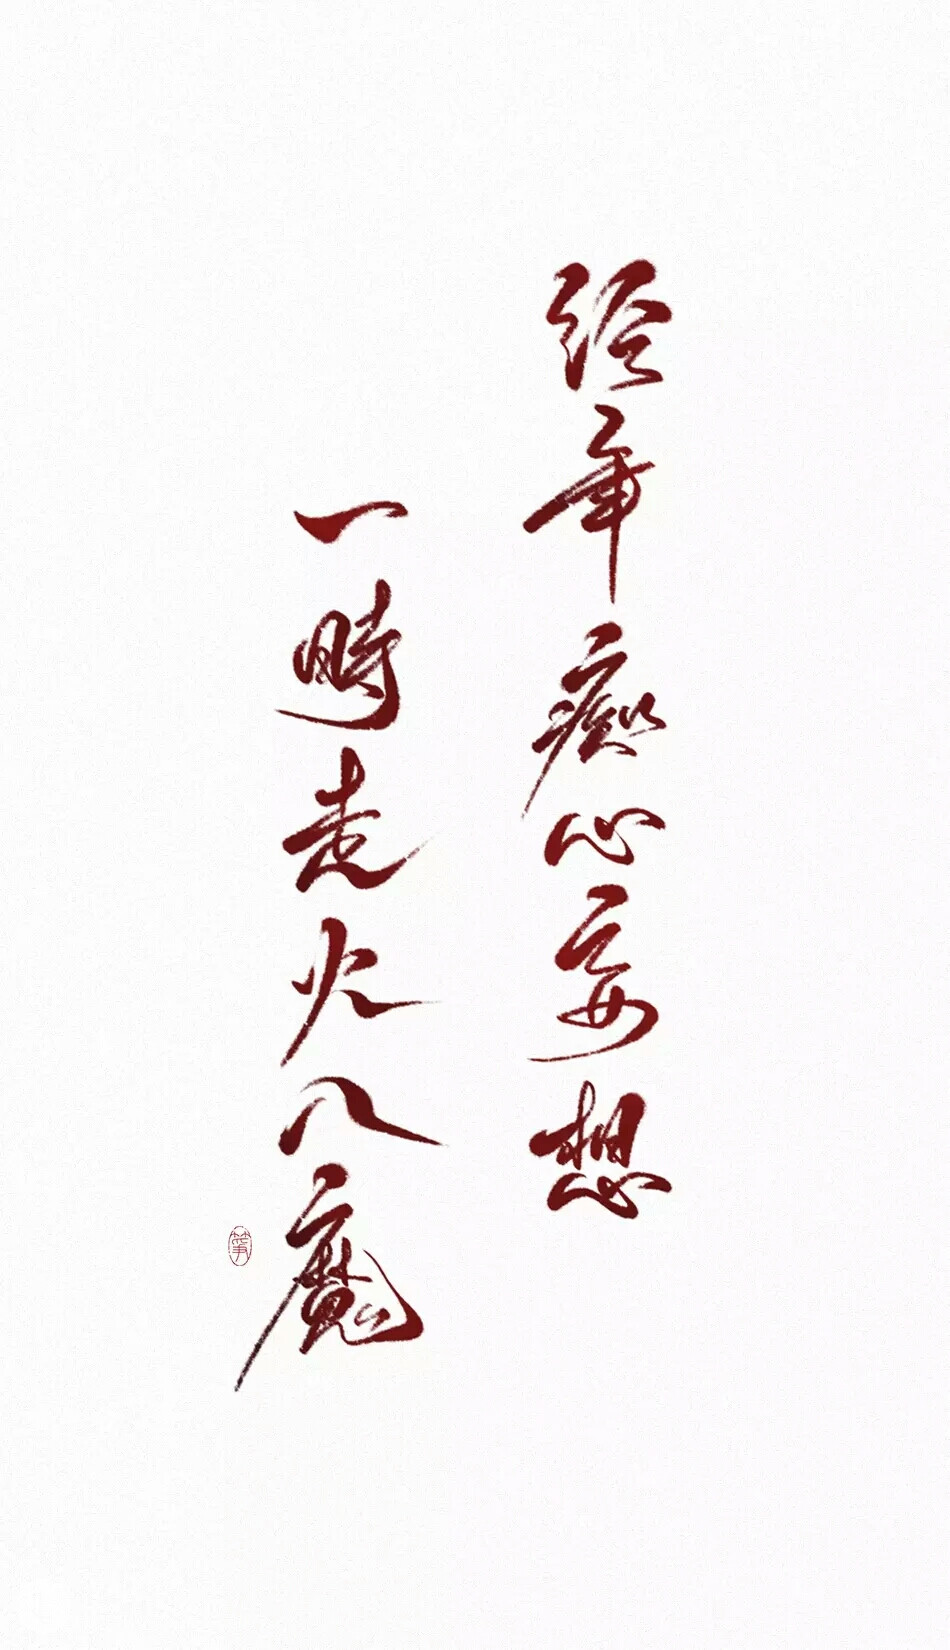 经年痴心妄想
一時走火入魔
筝